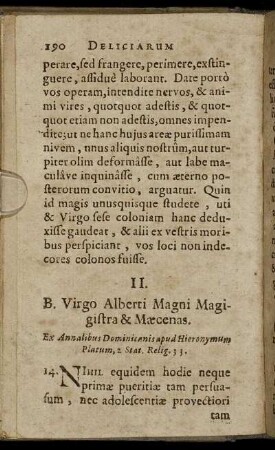 190 DELICIARUM
perare, sed frangere, perimere, exstin-
guere, assiduè laborant. Date porrò
vos operam, intendite nervos, & ani-
mi vires, quotquot adestis, & quot-
quot etiam non adestis, omnes impen-
dite; ut ne hanc hujus areæ purissimam
nivem, unus aliquis nostrûm, aut tur-
piter olim deformâsse, aut labe ma-
culâve inquinâsse, cum æterno po-
sterorum convitio, arguatur. Quin
id magis unusquisque studete, uti
& Virgo sese coloniam hanc dedu-
xisse gaudeat, & alii ex vestris mori-
bus perspiciant, vos loci non inde-
cores colonos fuisse.
II.
B. Virgo Alberti Magni Magi-
gistra & Mæcenas.
Ex Annalibus Dominicanis apud Hieronymum
Platum, 2. Stat. Relig. 33.
14. NIhil equidem hodie neque
primæ pueritiæ tam persua-
sum, nec adolescentiæ provectiori
tam